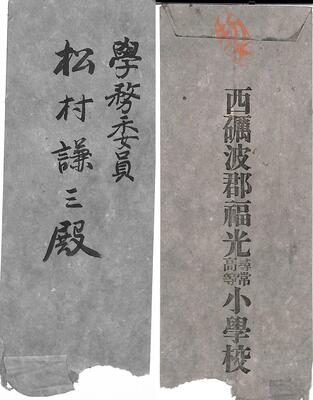 學務委員
松村謙三殿
西礪波郡福光尋常高等小學校